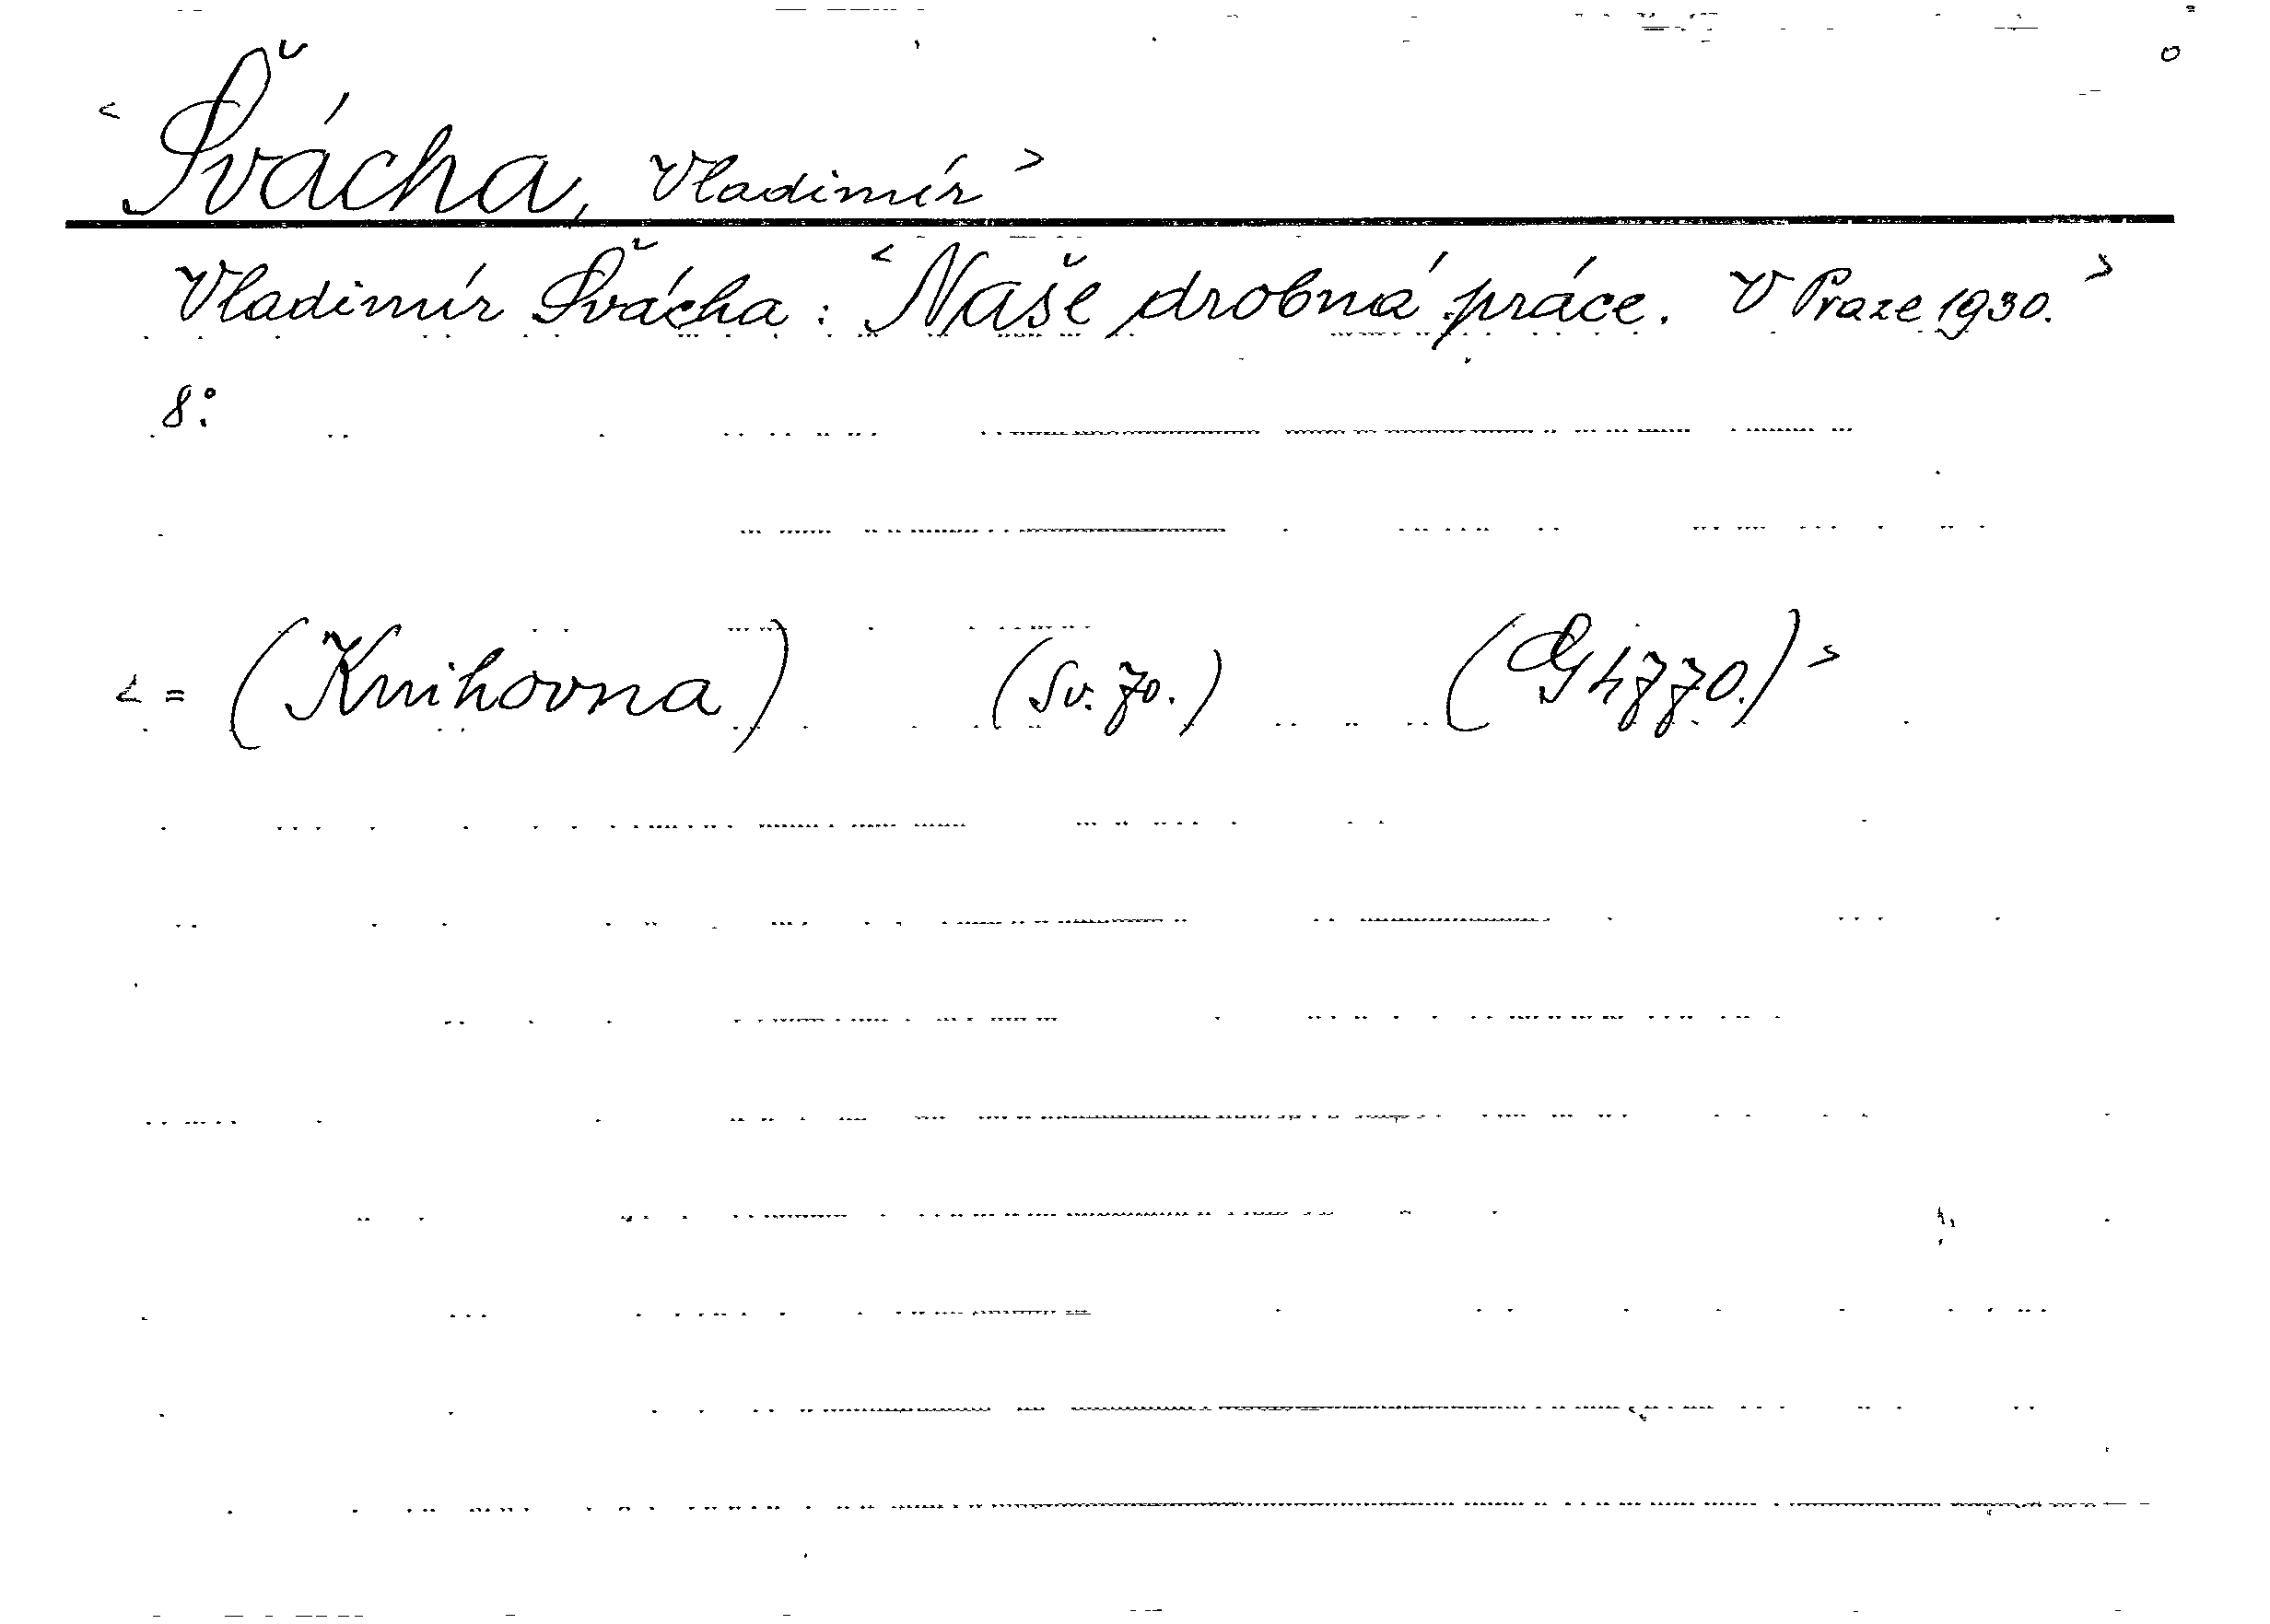 < Švácha, Vladimír >
Vladimír Švácha: < Naše drobná práce. V Praze 1930. >
8°.
< = (Knihovna) (Sv. 70.) (G 4770.) >